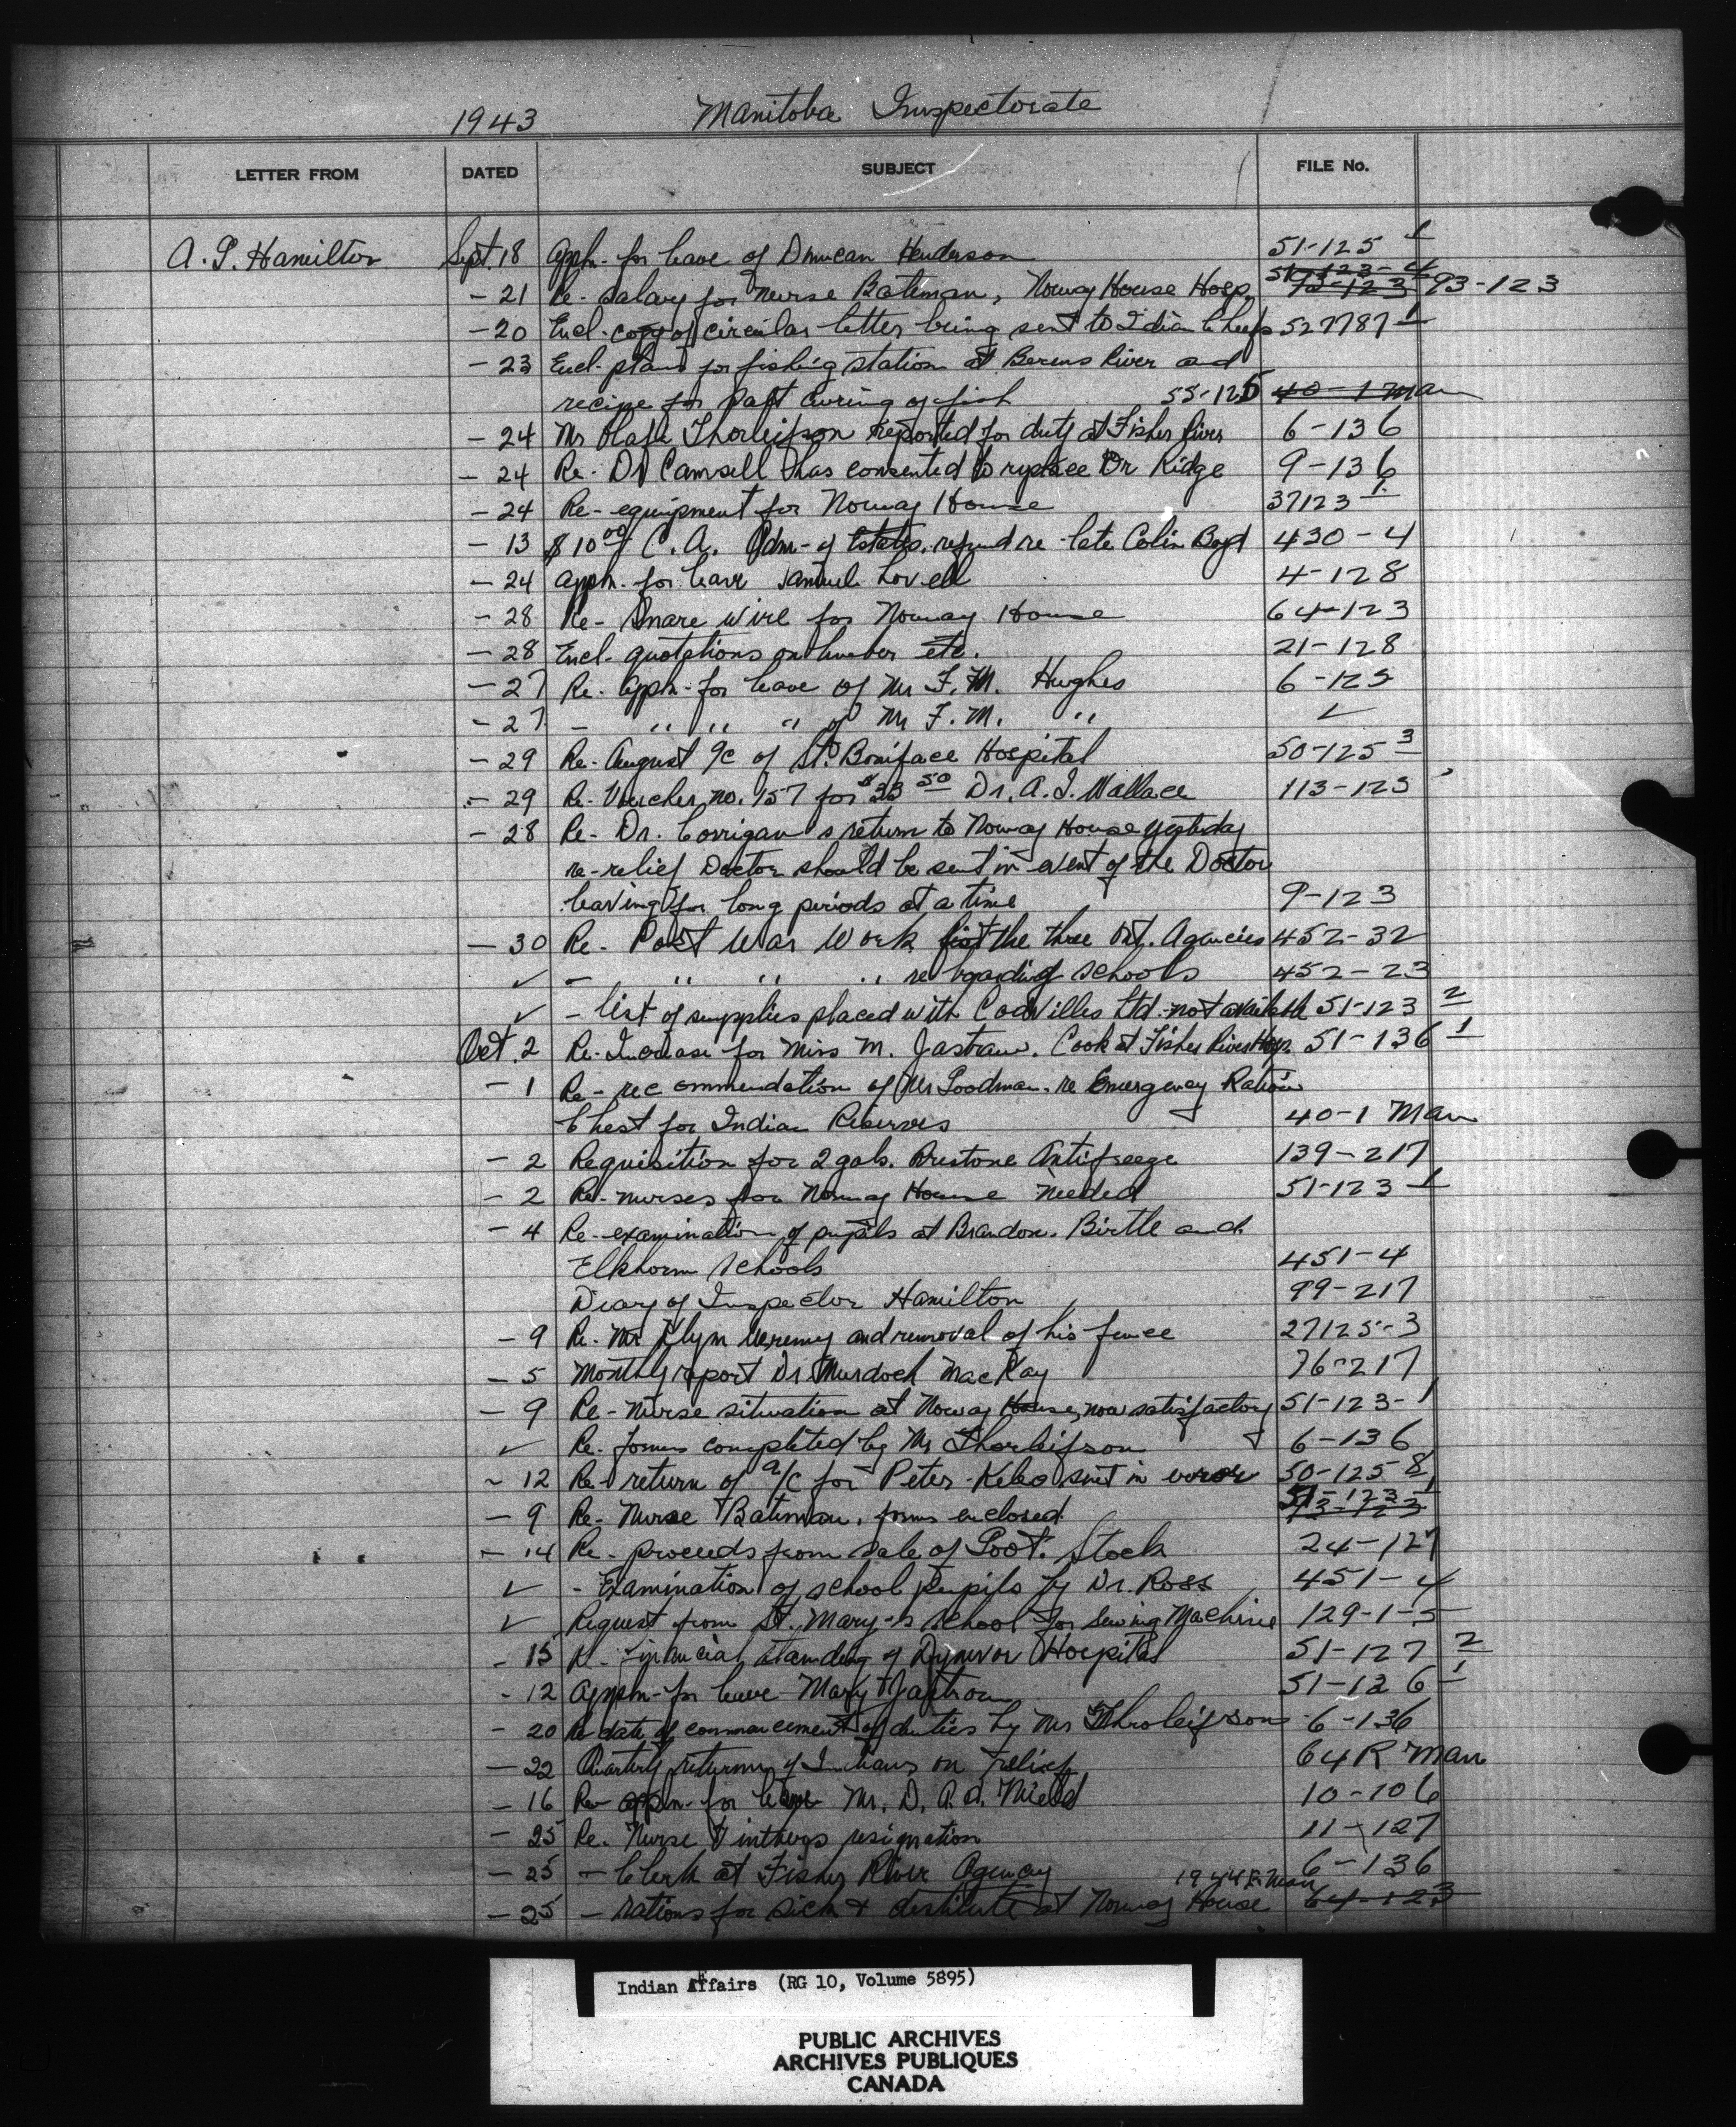 1943 Manitoba Inspectorate
LETTER FROM DATED SUBJECT FILE No.
A. G. Hamilton Sept. 18 Appln- for leave of Duncan Henderson 51-125 1
- 21 Re- Salary for Nurse Bateman, Norway House Hosp. 93-123
- 20 Encl- copy of circular letter being sent to Indian Chiefs 527787-1
- 23 Encl- plans for fishing station at Berens River and
recipe for salt curing of fish 55-125 40-1 Man
- 24 Mr Olafe Thorleifson reported for duty at Fisher River 6-136
- 24 Re- Dr Camsell has consented to replace Dr Ridge 9-136
- 24 Re- equipment for Norway House 37123-1
- 13 $10.00 C. A. Adm- of Estates. refund re late Colin Boyd 430-4
- 24 appln. for leave Samuel Lovell 4-128
- 28 Re- Snare Wire for Norway House 64-123
- 28 Encl- quotations on lumber etc. 21-128
- 27 Re- Appln- for leave of Mr F. M. Hughes 6-125
- 27 - " " " of Mr F. M. " ✓
- 29 Re- August a/c of St. Boniface Hospital 50-125 3
- 29 Re- Voucher no. 157 for $33 50 Dr. A. I. Wallace 113-125
- 28 Re- Dr. Corrigan's return to Norway House yesterday
re-relief Doctor should be sent in event of the Doctor
leaving for long periods at a time 9-123
- 30 Re- Post War Work for the three Ont. Agencies 452-32
✓ - " " " re boarding schools 452-23
✓ - list of supplies placed with Codvilles Ltd. not available 51-123 2
Oct. 2 Re- Increase for Miss M. Jastraw. Cook at Fisher River Hosp. 51-136 1
- 1 Re- recommendation of Mr Goodman. re Emergency Ration
Chest for Indian Reserves 40-1 Man
- 2 Requisition for 2 gals. Prestone Antifreeze 139-217
- 2 Re- nurses for Norway House needed 51-123 1
- 4 Re- examination of pupils at Brandon. Birtle and
Elkhorn Schools 451-4
Diary of Inspector Hamilton 99-217
- 9 Re- Mr Klym and removal of his fence 27125-3
- 5 Monthly report Dr. Murdoch MacKay 76-217
- 9 Re- Nurse situation at Norway House, now satisfactory 51-123-1
✓ Re- forms completed by Mr Thorleifson 6-136
- 12 Re- return of a/c for Peter Kebo sent in error 50-125 8
- 9 Re- Nurse Bateman, forms enclosed. 51-123-1 93-123
- 14 Re- proceeds from sale of Govt. Stock 24-127
✓ - Examination of school pupils by Dr. Ross 451-4
✓ Request from St. Mary's School for Sewing Machine 129-1-5
- 15 R- Financial standing of Dynevor Hospital 51-127 2
- 12 Appln- for leave Mary Jastrow 51-136 1
- 20 Re date of commencement of duties by Mr Thorleifson 6-136
- 22 Quarterly returns of Indians on relief 64R Man
- 16 Re- appln- for leave Mr. D. A. A. Nield 10-106
- 25 Re- Nurse resignation 11-127
- 25 - Clerk at Fisher River Agency 6-136
- 25 - rations for sick & destitute at Norway House 1944 R. Man 64-123
Indian Affairs (RG 10, Volume 5895)
PUBLIC ARCHIVES
ARCHIVES PUBLIQUES
CANADA